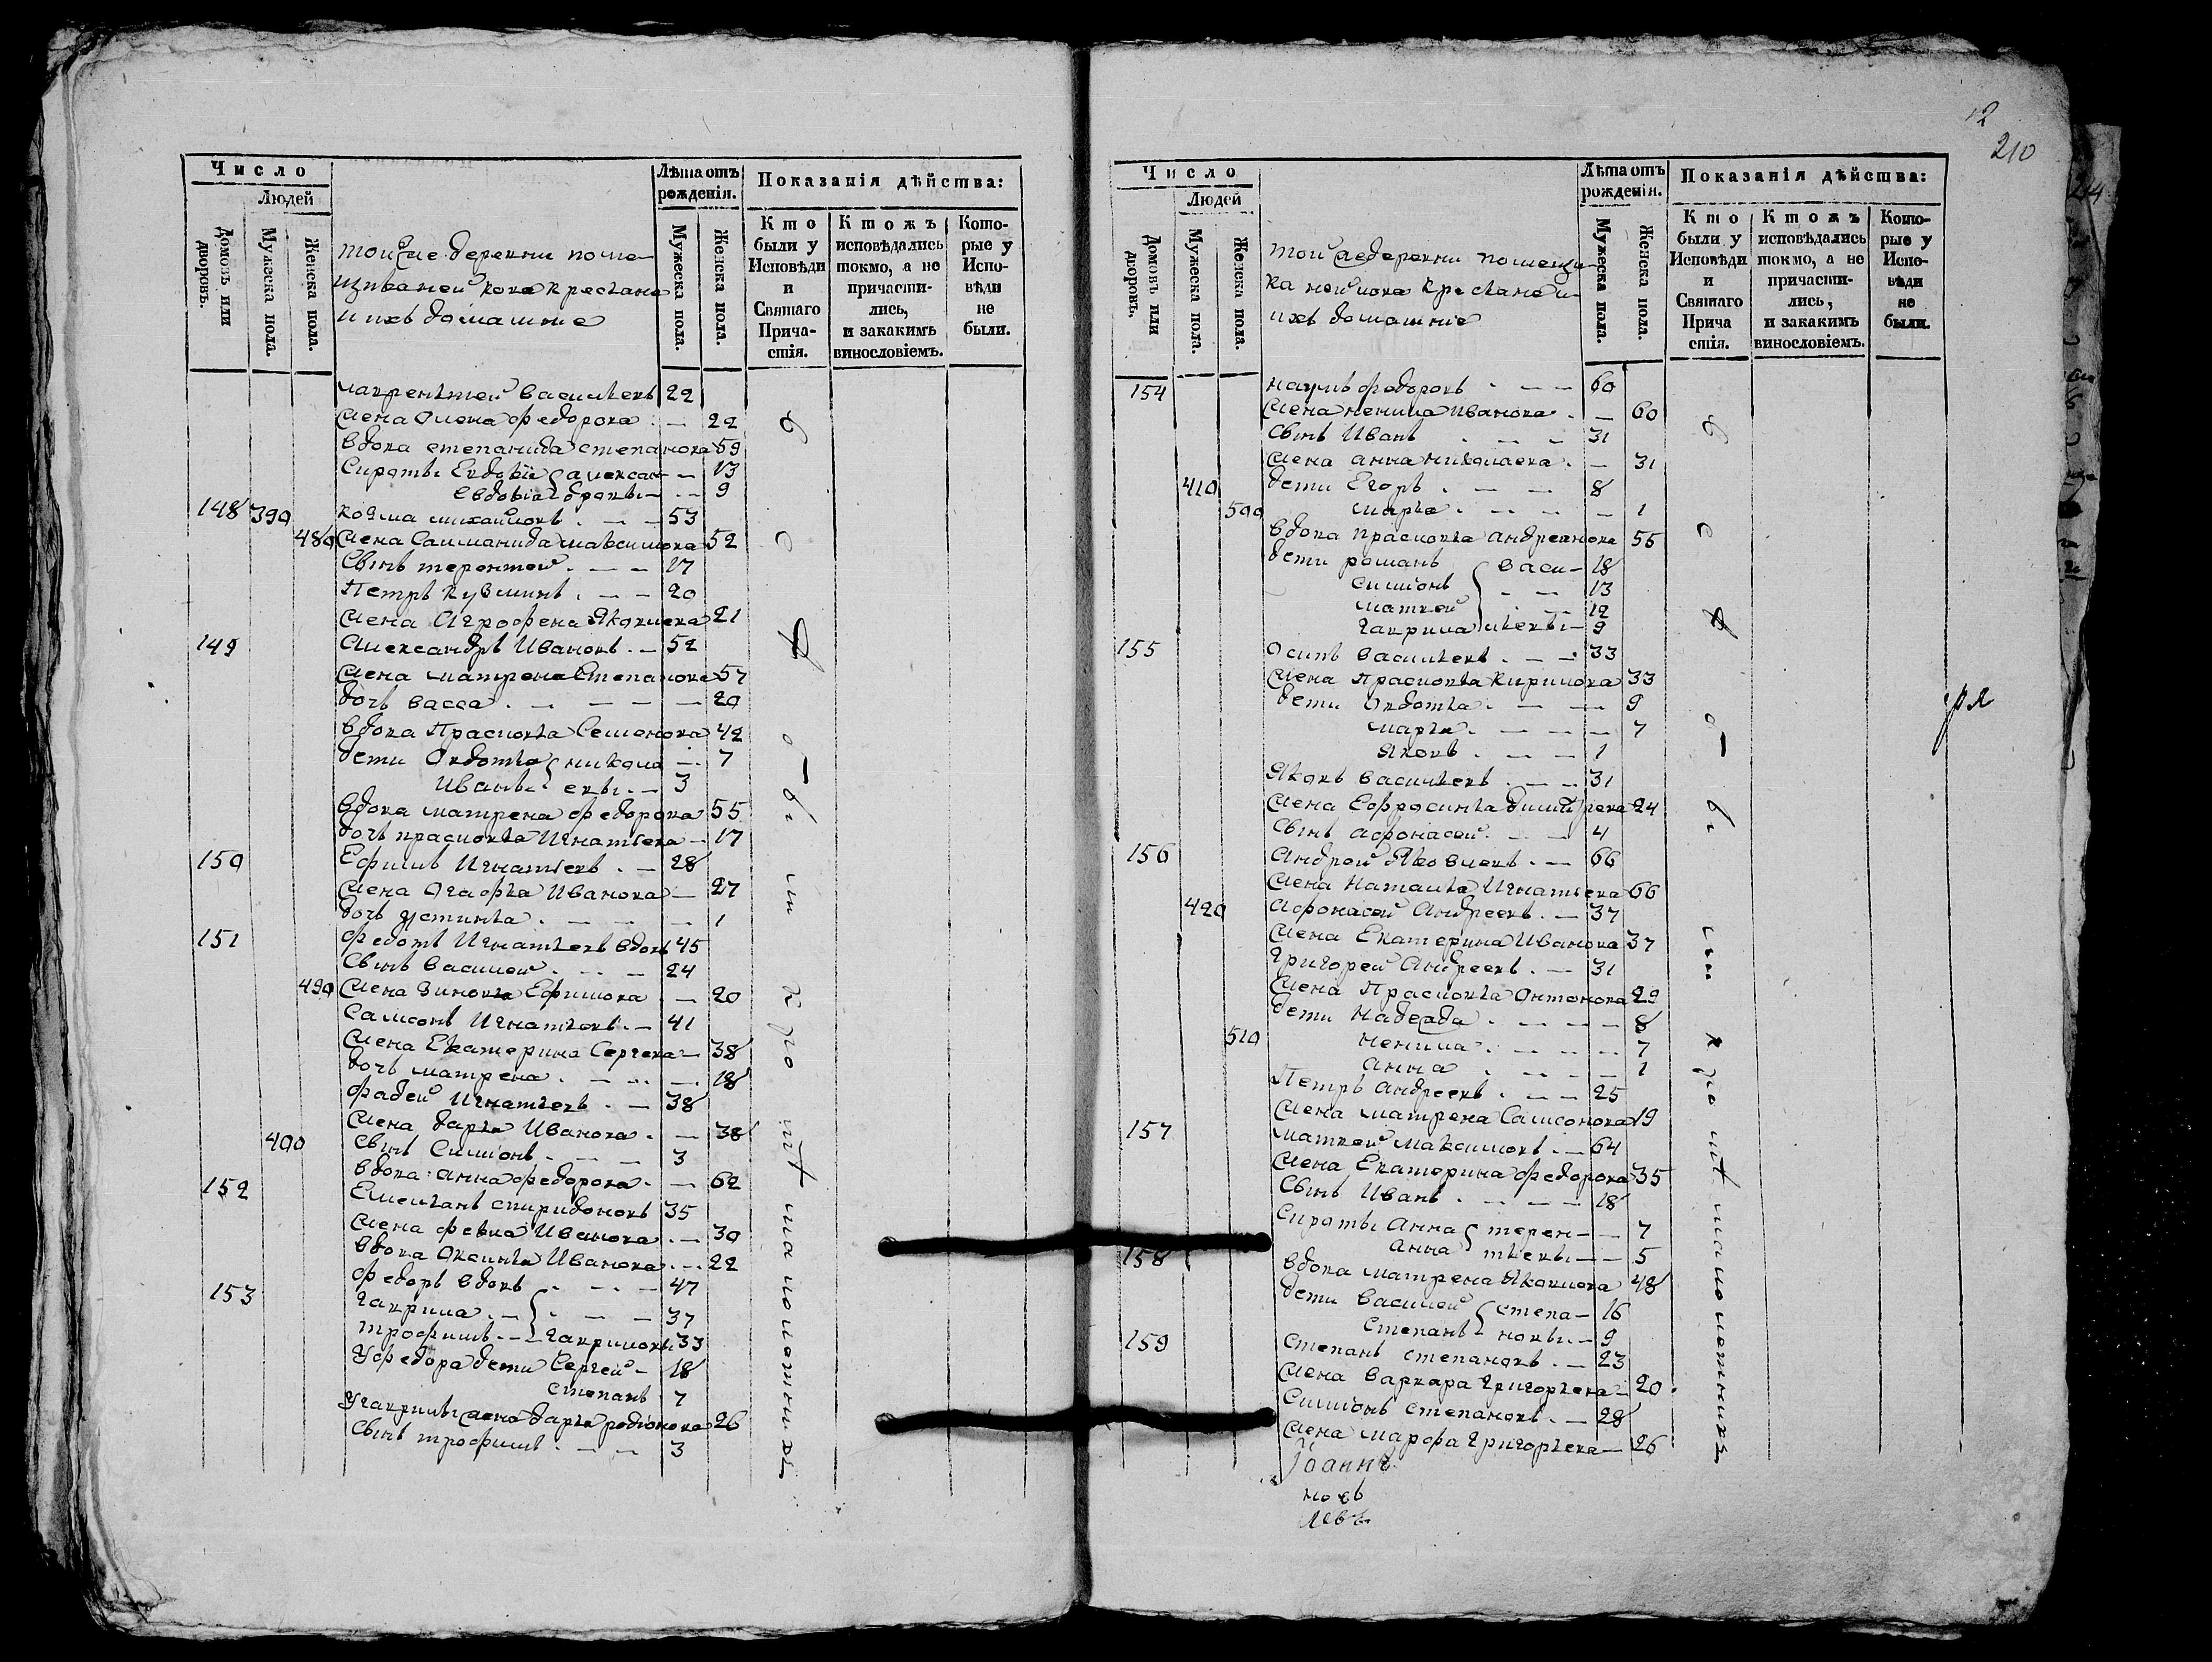 12
210
Число
Людей
Домовъ или дворовъ.
Мужеска пола.
Женска пола.
Лѣта отъ рожденія.
Мужеска пола.
Женска пола.
Показанія дѣйства:
Кто были у Исповѣди и Святаго Прича-стія.
Ктожъ исповѣдались токмо, а не причасти-лись, и закакимъ винословіемъ.
Кото-рые у Испо-вѣди не были.
тойже деревни поме
крестьяне
и ихъ домашние
лаврентей васильевъ 22
жена Олена федорова 22
вдова степанида степанова 59
Сироты Евдокия алексан 13
Евдокия дровы 9
148 390 козма михайловъ 53
480 жена Саламанида максимова 52
Сынъ терентей 17
Петръ Кузминъ 20
жена Агрофена Яковлева 21
149 Александръ Ивановъ 52
жена матрена Степанова 57
дочь васса 20
вдова Прасковья Семенова 42
дети Овдотья никола 7
Иванъ евы 3
вдова матрена федорова 55
дочь прасковья Игнатьева 17
150 Ефимъ Игнатьевъ 28
жена Огафья Иванова 27
дочь устинья 1
151 федотъ Игнатьевъ вдовъ 45
Сынъ василей 24
490 жена Зиновья Ефимова 20
Самсонъ Игнатьевъ 41
жена Екатерина Сергева 38
дочь матрена 18
фадей Игнатьевъ 38
жена дарья Иванова 38
400 Сынъ Симионъ 3
вдова анна федорова 62
152 Емельянъ спиридоновъ 35
жена фекла Иванова 30
вдова Оксинья Иванова 22
153 федоръ вдовъ 47
гаврила 37
трофимъ гавриловы 33
У федора дети Сергей 18
степанъ 7
У гаврилы жена дарья родионова 26
Сынъ трофимъ 3
Число
Людей
Домовъ или дворовъ.
Мужеска пола.
Женска пола.
Лѣта отъ рожденія.
Мужеска пола.
Женска пола.
Показанія дѣйства:
Кто были у Исповѣди и Святаго Прича стія.
Ктожъ исповѣдались токмо, а не причасти-лись, и закакимъ винословіемъ.
Кото-рые у Испо-вѣди не были.
тойже деревни помещи
крестьяне и
ихъ домашние
154 наумъ федоровъ 60
жена ненила Иванова 60
Сынъ Иванъ 31
жена анна николаева 31
410 дети Егоръ 8
500 марья 1
вдова прасковья андреянова 55
дети романъ васи 18
симионъ 13
матвей 12
гаврила льевы 9
155 Осипъ васильевъ 33
жена Прасковья кирилова 33
дети Овдотья 9
марья 7
Яковъ 1
Яковъ васильевъ 31
жена Ефросинья димитрева 24
Сынъ афонасей 4
156 Андрей Яковлевъ 66
жена Наталья Игнатьева 66
420 Афонасей Андреевъ 37
жена Екатерина Иванова 37
григорей Андреевъ 31
жена Прасковья Онтонова 29
дети Надежда 8
510 ненила 7
анна 1
Петръ андреевъ 25
жена матрена Самсонова 19
157 матвей максимовъ 64
жена Екатерина федорова 35
Сынъ Иванъ 18
Сироты Анна терен 7
анна тьевы 5
158 вдова матрена Яковлева 48
дети василей степа 16
Степанъ новы 9
159 Степанъ степановъ 23
жена варвара григорьева 20
Симионъ степановъ 28
жена марфа григорьева 26
Іоаннъ